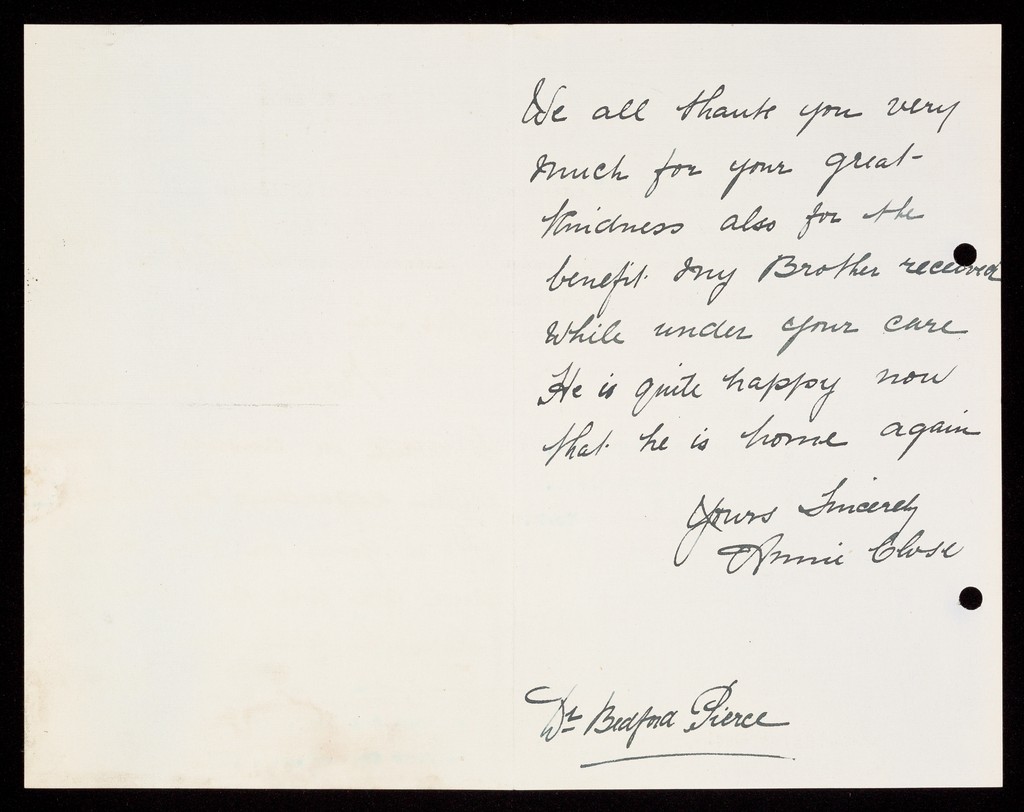 We all thank you very
much for your great
kindness also for the
benefit my Brother received
while under your care
He is quite happy now
that he is home again
Yours Sincerely
Annie Close
Dr Bedford Pierce